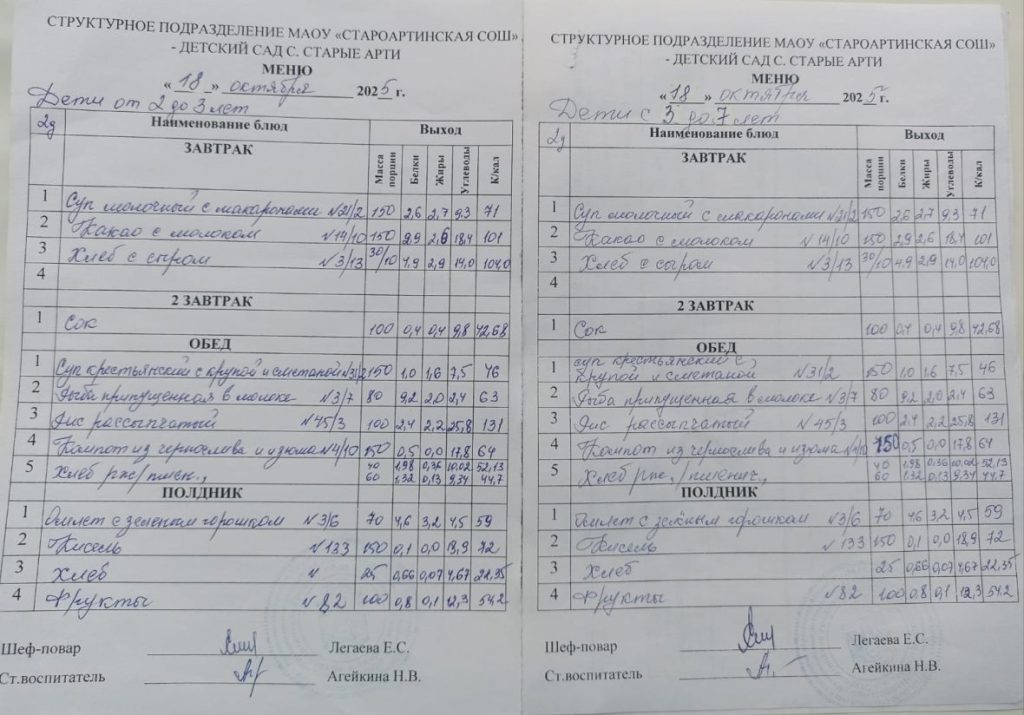 СТРУКТУРНОЕ ПОДРАЗДЕЛЕНИЕ МАОУ «СТАРОАРТИНСКАЯ СОШ»
- ДЕТСКИЙ САД С. СТАРЫЕ АРТИ
МЕНЮ
«18» октября 2025 г.
Дети от 2 до 3 лет
2д Наименование блюд Выход
ЗАВТРАК Масса порции Белки Жиры Углеводы К/кал
1 Суп молочный с макаронами №21/2 150 2,6 2,7 9,3 71
2 Какао с молоком №14/10 150 2,9 2,6 18,4 101
3 Хлеб с сыром №3/13 30/10 4,9 2,9 14,0 104,0
4
2 ЗАВТРАК
1 Сок 100 0,4 0,4 9,8 42,68
ОБЕД
1 Суп крестьянский с крупой и сметаной №31/2 150 1,0 1,6 7,5 46
2 Рыба припущенная в молоке №3/7 80 9,2 2,0 2,4 63
3 Рис рассыпчатый №45/3 100 2,4 2,2 25,8 131
4 Компот из чернослива и изюма №4/10 150 0,5 0,0 17,8 64
5 Хлеб рж/пшен., 40 1,98 0,36 10,02 52,13
60 1,32 0,13 9,34 44,7
ПОЛДНИК
1 Омлет с зеленым горошком №3/6 70 4,6 3,2 4,5 59
2 Кисель №133 150 0,1 0,0 19,9 72
3 Хлеб 25 0,66 0,07 4,67 22,35
4 Фрукты №82 100 0,8 0,1 12,3 54,2
Шеф-повар Легаева Е.С.
Ст.воспитатель Агейкина Н.В.
СТРУКТУРНОЕ ПОДРАЗДЕЛЕНИЕ МАОУ «СТАРОАРТИНСКАЯ СОШ»
- ДЕТСКИЙ САД С. СТАРЫЕ АРТИ
МЕНЮ
«18» октября 2025 г.
Дети с 3 до 7 лет
2д Наименование блюд Выход
ЗАВТРАК Масса порции Белки Жиры Углеводы К/кал
1 Суп молочный с макаронами №21/2 150 2,6 2,7 9,3 71
2 Какао с молоком №14/10 150 2,9 2,6 18,4 101
3 Хлеб с сыром №3/13 30/10 4,9 2,9 14,0 104,0
4
2 ЗАВТРАК
1 Сок 100 0,4 0,4 9,8 42,68
ОБЕД
1 суп крестьянский с
крупой и сметаной №31/2 150 1,0 1,6 7,5 46
2 Рыба припущенная в молоке №3/7 80 9,2 2,0 2,4 63
3 Рис рассыпчатый №45/3 100 2,4 2,2 25,8 131
4 Компот из чернослива и изюма №4/10 150 0,5 0,0 17,8 64
5 Хлеб рж., /пшенич., 40 1,98 0,36 10,02 52,13
60 1,32 0,13 9,34 44,7
ПОЛДНИК
1 Омлет с зелёным горошком №3/6 70 4,6 3,2 4,5 59
2 Кисель №133 150 0,1 0,0 18,9 72
3 Хлеб 25 0,66 0,07 4,67 22,35
4 Фрукты №82 100 0,8 0,1 12,3 54,2
Шеф-повар Легаева Е.С.
Ст.воспитатель Агейкина Н.В.